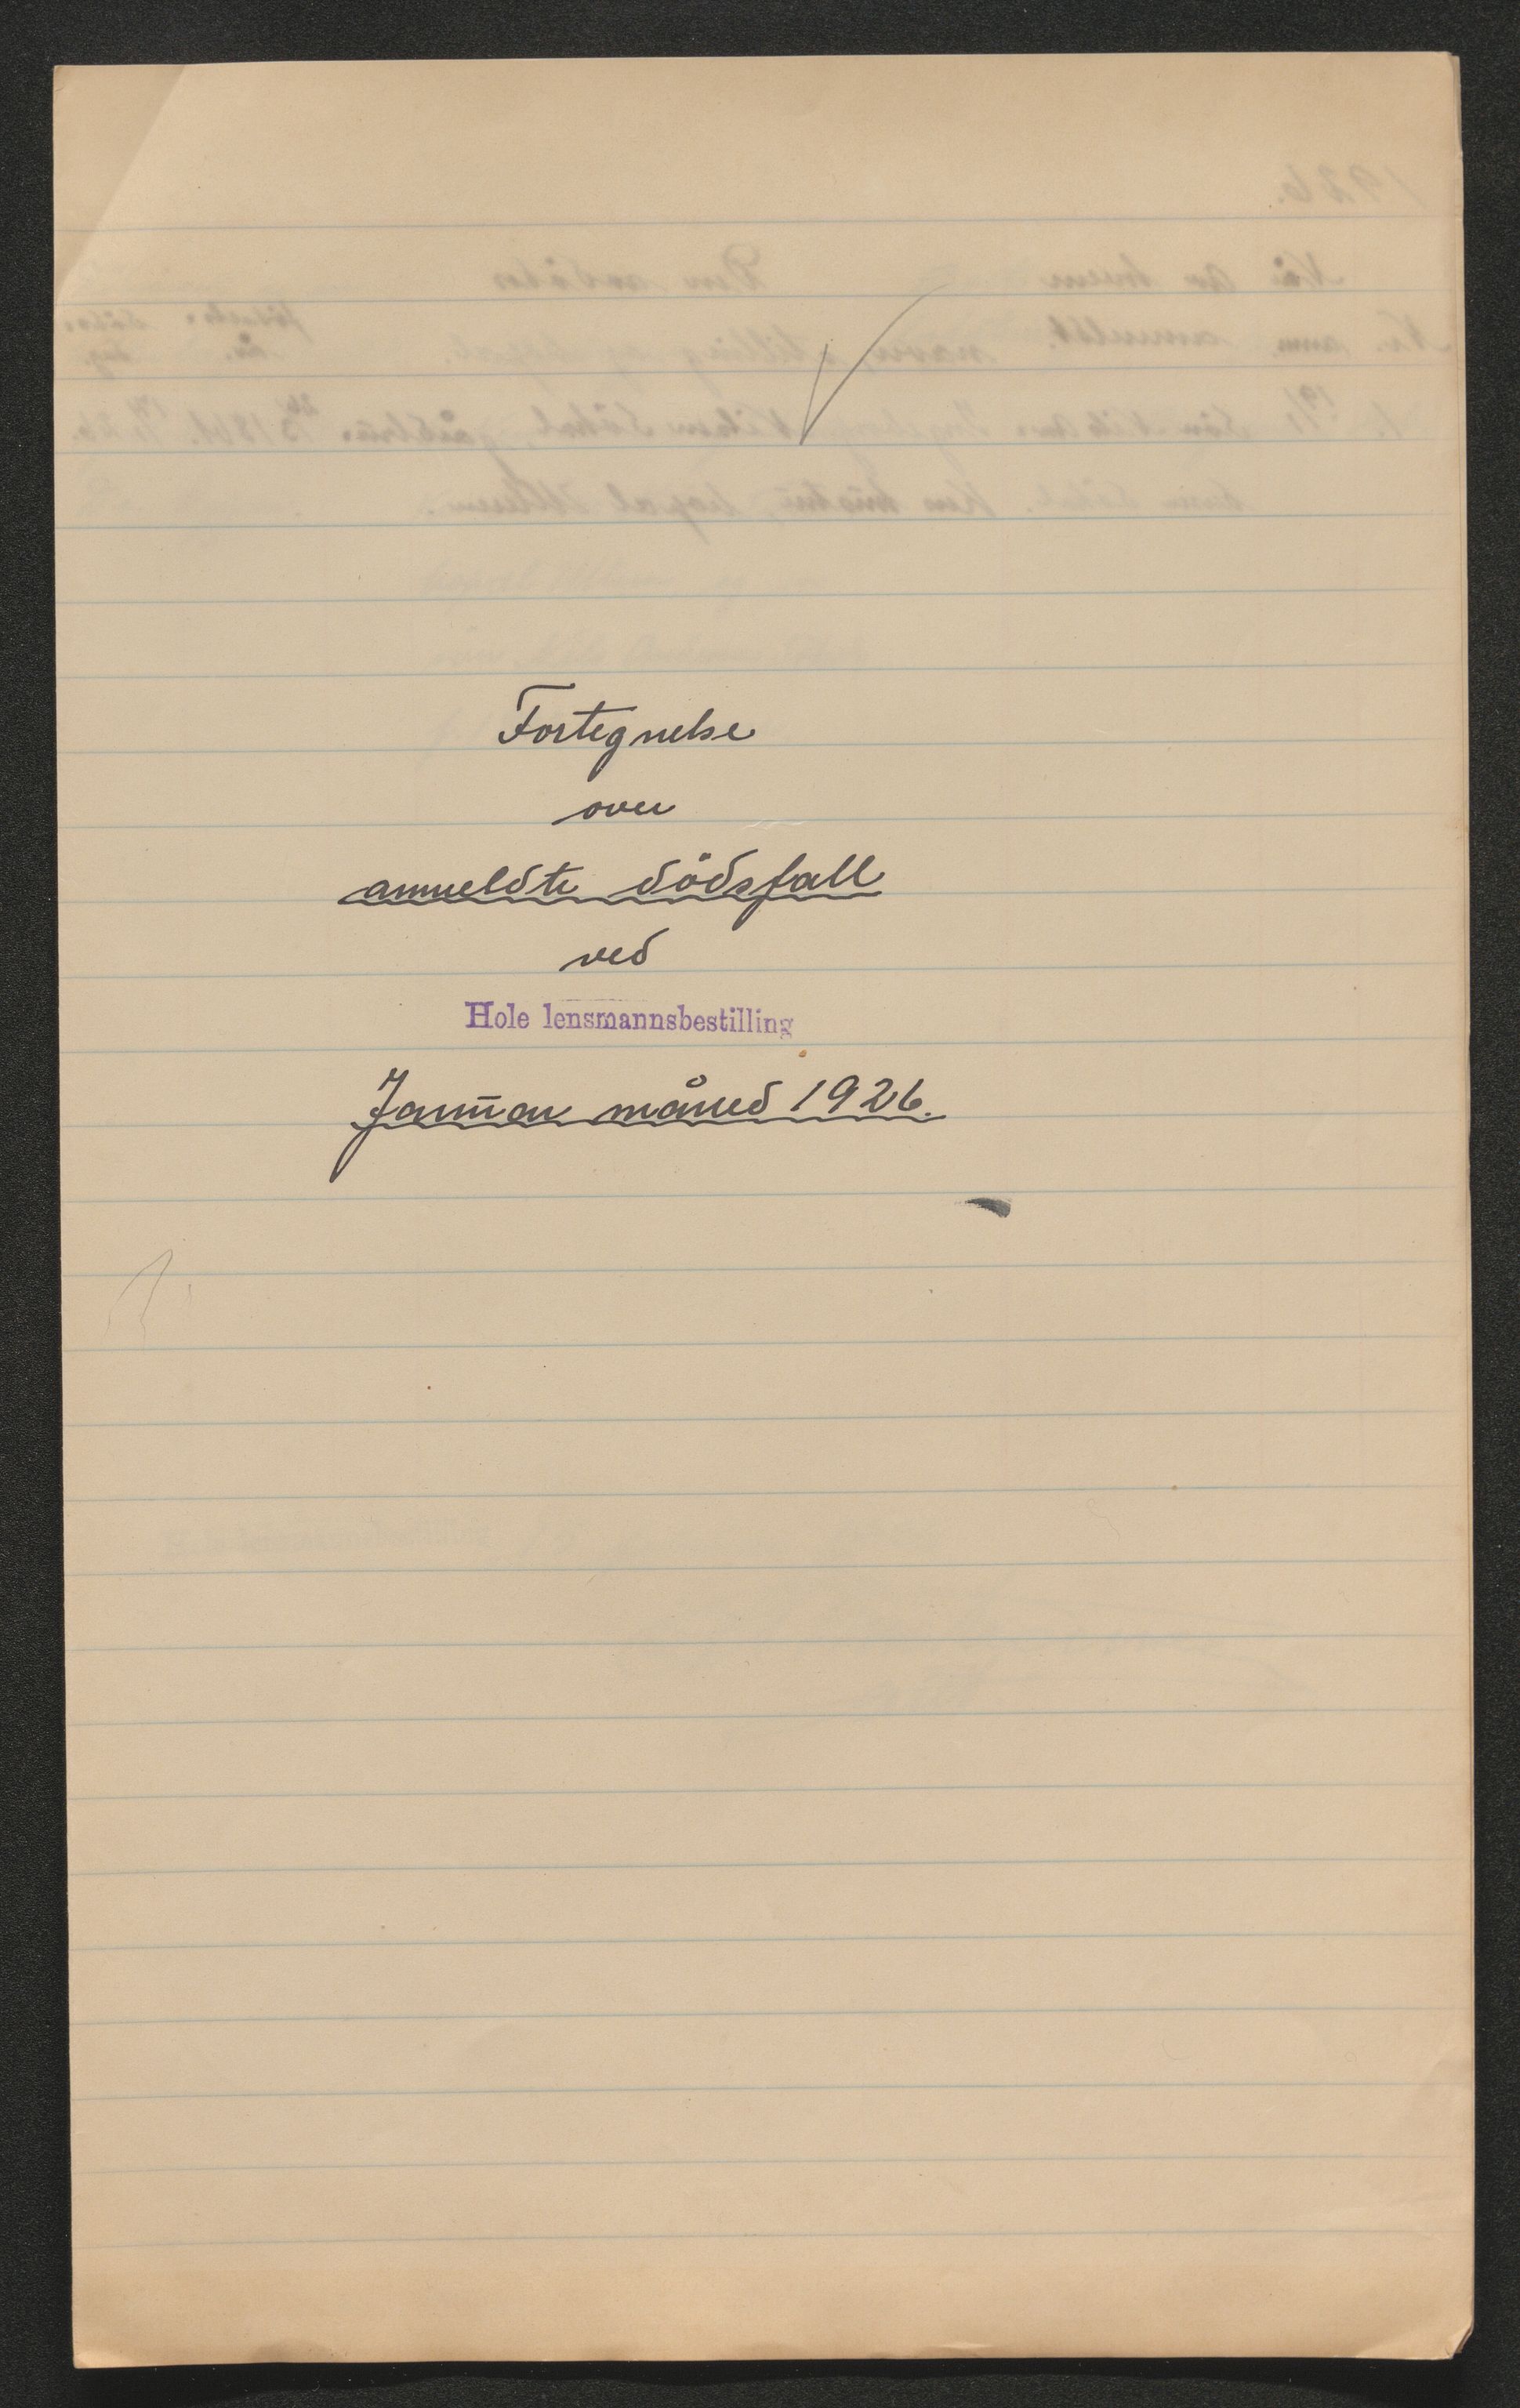 Fortegnelse
over
anmeldte dödsfall
ved
Hole lensmannsbestilling
Januar måned 1926.